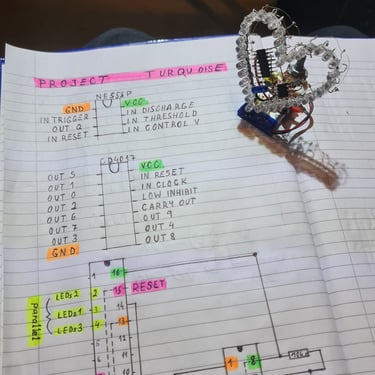 PROJECT TURQUOISE
NE555P
GND VCC
IN TRIGGER IN DISCHARGE
OUT Q IN THRESHOLD
IN RESET IN CONTROL V
CD4017
OUT 5 VCC
OUT 1 IN RESET
OUT 0 IN CLOCK
OUT 2 LOW INHIBIT
OUT 6 CARRY OUT
OUT 7 OUT 9
OUT 3 OUT 4
GND OUT 8
1 16
parallel
LEDs2 2 15 RESET
LEDs1 3 14
LEDs3 4 13
12
11
10
1 8